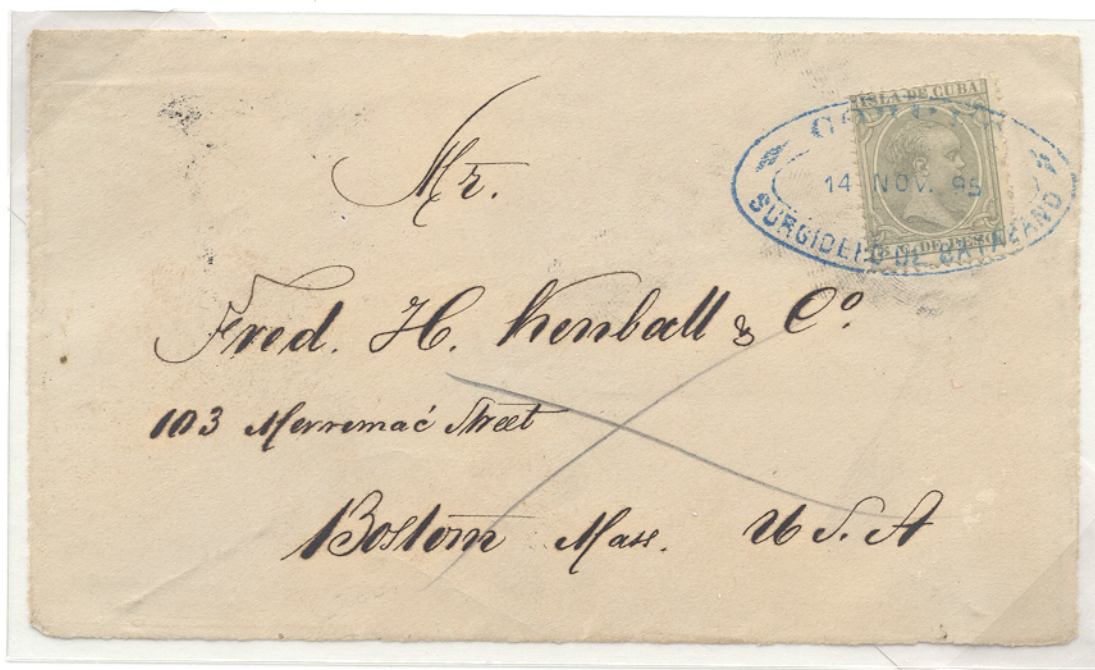 ISLA DE CUBA
14 NOV. 95
SURGIDERO DE BATABANO
DE PESO
Mr.
Fred. H. Kenball & Co.
103 Merremac Street
Boston Mass. U S. A